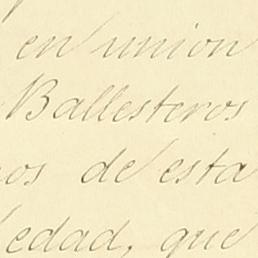 en union
Ballesteros
os de esta
edad, que